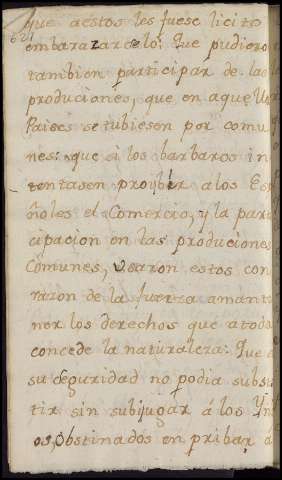 que aestos les fuese licito
embarazarselo: Que pudiero
tambien participar de las
produciones, que en aquellos
Paises se tubiesen por comu
nes: que si los barbaros in
tentasen proibir alos Esp
ñoles el Comercio, y la parti
cipacion en las produciones
Comunes, usaron estos con
razon de la fuerza a mante
ner los derechos que atodos
concede la naturaleza: Que
su seguridad no podia subsis
tir sin subjugar á los Yn
os, Obstinados en pribar a